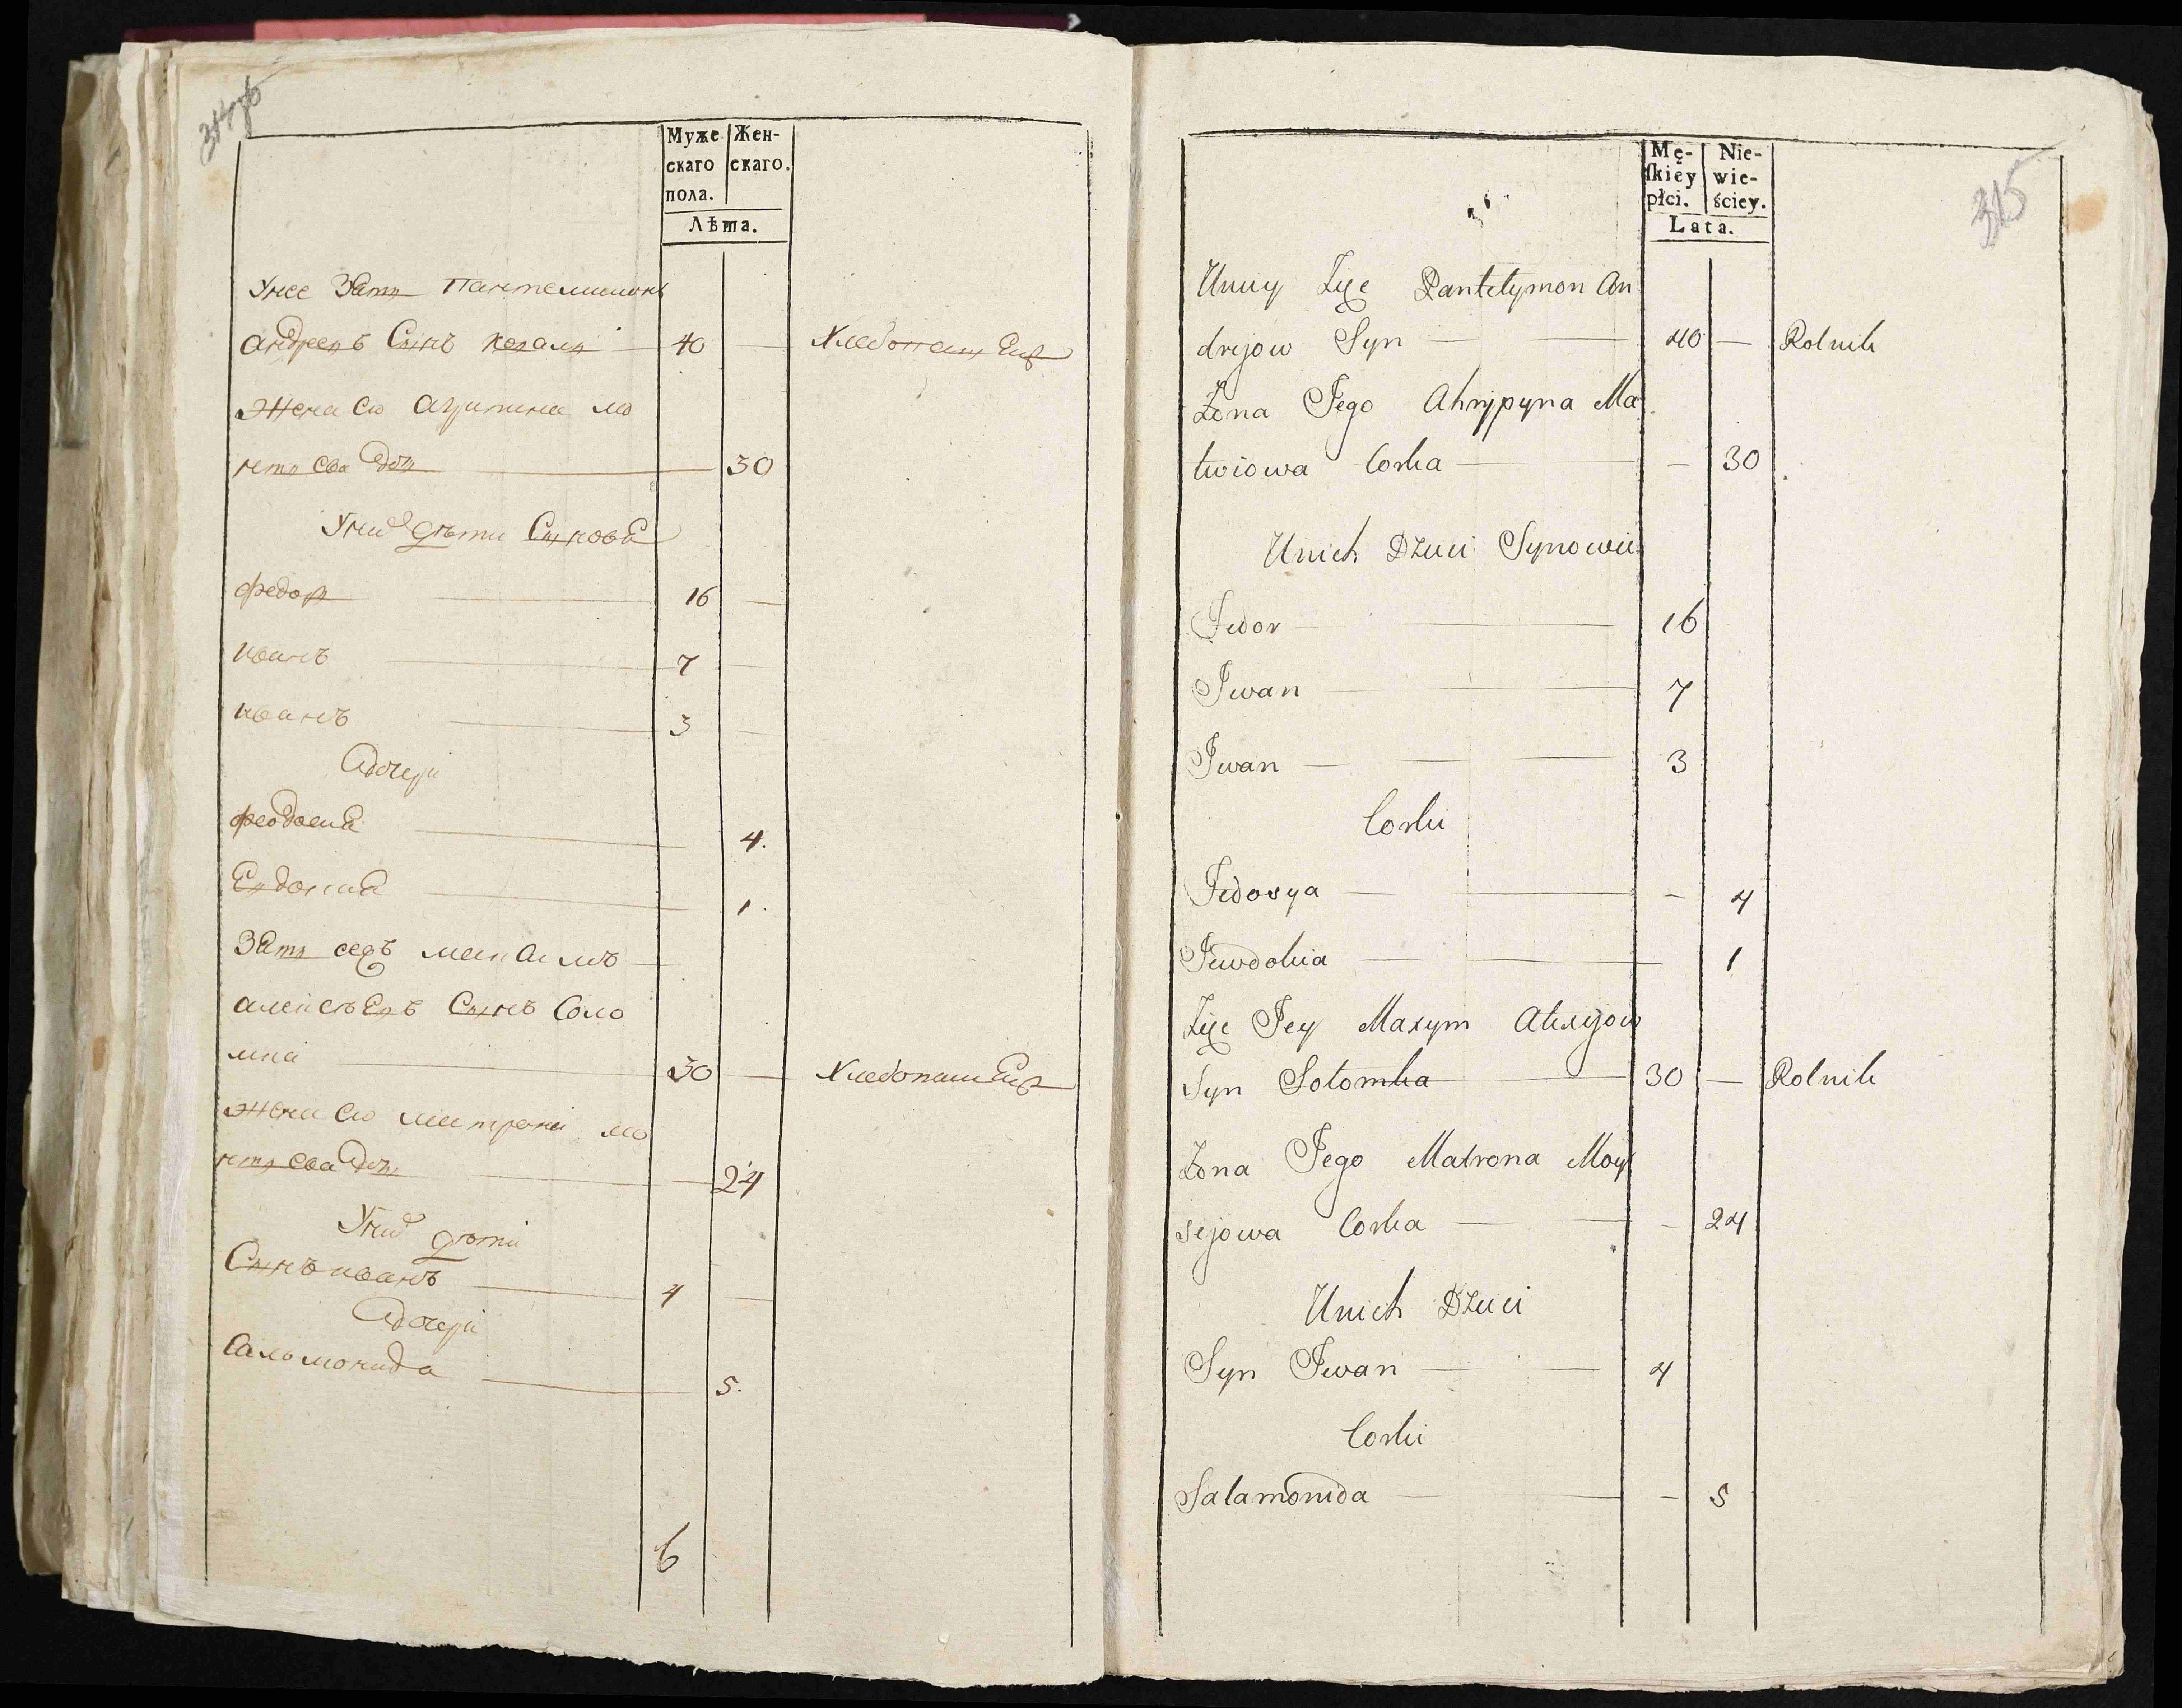 Муже Жен-
скаго скаго.
пола.
Лѣта.
Унее Зять Пантелимонъ
андреевъ Сынъ коваль 40 — Хлебопашець
Жена его агрипина мо
— 30
Унихъ дѣти Сыновя
Федоръ 16 —
иванъ 7 —
иванъ 3 —
дочери
феодосия 4.
Евдокия 1.
Зять сеѣ максимъ
алексѣевъ Сынъ Соло
мка 30 — Хлебопашець
жена его матрона мо
— 24
Унихъ дѣти
Сынъ иванъ 4 —
дочери
Саломонида 5.
6
315
Mę- Nie-
ſkiey wie-
płci. ściey.
Lata.
Uniey Zięc Pantelymon An
drijow Syn 40 — Rolnik
Zona Jego Ahrypyna Ma
twiowa Corka — 30
Unich Dzieci Synowie
Fedor 16
Iwan 7
Iwan 3
Corki
Fedosya — 4
Jewdokia 1
Zięc Jey Maxym Alexijow
Syn Solomka 30 — Rolnik
Zona Jego Matrona Moy
sejowa Corka — 24
Unich Dzieci
Syn Iwan 4
Corki
Salamonida — 5